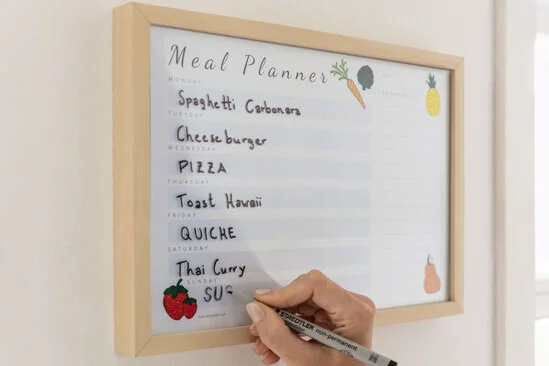 Meal Planner
MONDAY
Spaghetti Carbonara
TUESDAY
Cheeseburger
WEDNESDAY
PIZZA
THURSDAY
Toast Hawaii
FRIDAY
QUICHE
SATURDAY
Thai Curry
SUNDAY
SUS
STAEDTLER non-permanent